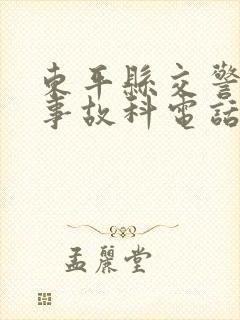 東平縣交警
事故科電話
孟麗堂